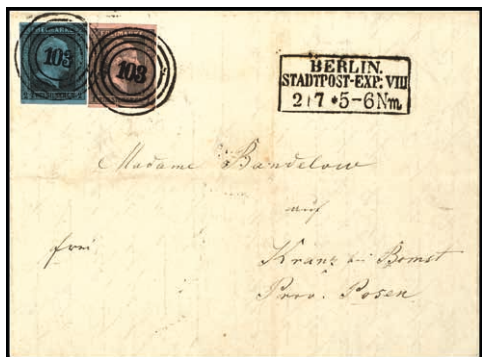 FREIMARKE
FREIMARKE
103
103
BERLIN.
STADTPOST-EXP: VIII
2 7 *5-6 Nm
Madame Bandelow
auf
frei
Kranz bei Bomst
Prov. Posen